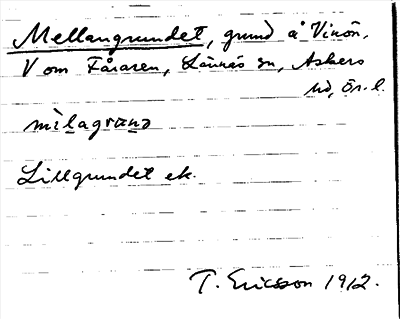 Mellangrundet, grund å Vinön,
V om Fåraren, Lännäs sn, Askers
hd, Ör. l.
mèlagrønə
Lillgrundet ek.
T. Ericsson 1912.